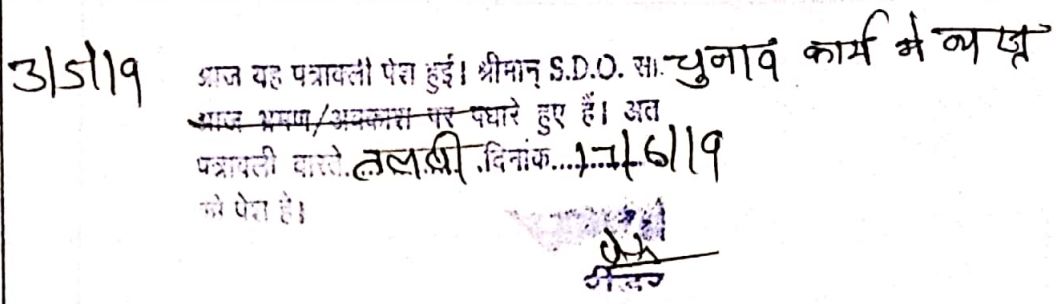 3/5/19 आज यह पत्रावली पेश हुई। श्रीमान् S.D.O. सा. चुनाव कार्य में व्यस्त
आज भ्रमण/अवकाश पर पधारे हुए हैं। अत
पत्रावली वास्ते. तलबी .दिनांक....17/6/19
को पेश हो।
रीडर